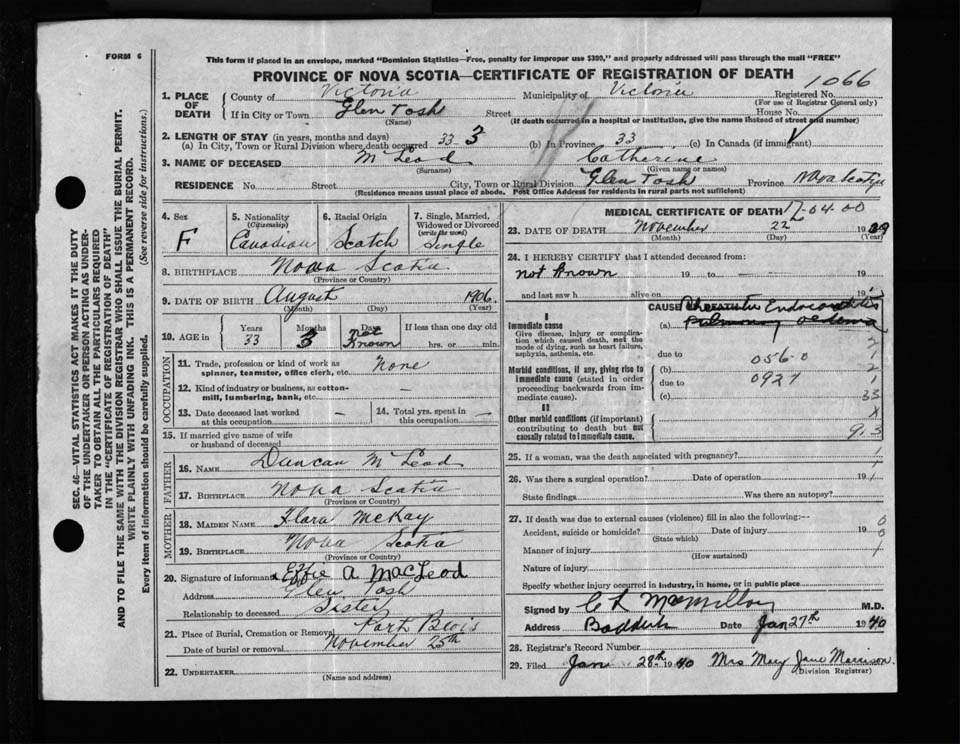 FORM 6
This form if placed in an envelope, marked "Dominion Statistics—Free, penalty for improper use $300," and properly addressed will pass through the mail "FREE"
PROVINCE OF NOVA SCOTIA—CERTIFICATE OF REGISTRATION OF DEATH
1066
1. PLACE OF DEATH
County of Victoria Municipality of Victoria Registered No.
(For use of Registrar General only)
If in City or Town Glen Tosh Street House No.
(Name) (If death occurred in a hospital or institution, give the name instead of street and number)
2. LENGTH OF STAY (in years, months and days)
(a) In City, Town or Rural Division where death occurred 33 3 (b) In Province 33 (c) In Canada (if immigrant)
3. NAME OF DECEASED McLeod Catherine
(Surname) (Given name or names)
RESIDENCE No. Street City, Town or Rural Division Glen Tosh Province Nova Scotia
(Residence means usual place of abode. Post Office Address for residents in rural parts not sufficient)
4. Sex F
5. Nationality (Citizenship) Canadian
6. Racial Origin Scotch
7. Single, Married, Widowed or Divorced (write the word) Single
8. BIRTHPLACE Nova Scotia
(Province or Country)
9. DATE OF BIRTH August 1906
(Month) (Day) (Year)
10. AGE in Years 33 Months 3 Days Not Known If less than one day old hrs. or min.
OCCUPATION
11. Trade, profession or kind of work as spinner, teamster, office clerk, etc. None
12. Kind of industry or business, as cotton-mill, lumbering, bank, etc. —
13. Date deceased last worked at this occupation —
14. Total yrs. spent in this occupation —
15. If married give name of wife or husband of deceased
FATHER
16. NAME Duncan McLeod
17. BIRTHPLACE Nova Scotia
(Province or Country)
MOTHER
18. MAIDEN NAME Flora McKay
19. BIRTHPLACE Nova Scotia
(Province or Country)
20. Signature of informant Effie A. MacLeod
Address Glen Tosh
Relationship to deceased Sister
21. Place of Burial, Cremation or Removal Port Bevis
Date of burial or removal November 25th
22. UNDERTAKER
(Name and address)
MEDICAL CERTIFICATE OF DEATH 17-04-00
23. DATE OF DEATH November 22 1939
(Month) (Day) (Year)
24. I HEREBY CERTIFY that I attended deceased from:
not known 19 to 19
and last saw h alive on 19
CAUSE OF DEATH
I
Immediate cause
Give disease, injury or complication which caused death, not the mode of dying, such as heart failure, asphyxia, asthenia, etc.
(a) Rheumatic Endocarditis
pulmonary oedema
due to
Morbid conditions, if any, giving rise to immediate cause (stated in order proceeding backwards from immediate cause).
(b) 056-0
due to 0927
(c)
II
Other morbid conditions (if important) contributing to death but not causally related to immediate cause.
2
1
2
1
33
X
9.3
25. If a woman, was the death associated with pregnancy?
26. Was there a surgical operation? Date of operation 19
State findings Was there an autopsy?
27. If death was due to external causes (violence) fill in also the following:—
Accident, suicide or homicide? Date of injury 19
(State which)
Manner of injury
(How sustained)
Nature of injury
Specify whether injury occurred in industry, in home, or in public place
Signed by C L McMillan M.D.
Address Baddeck Date Jan 27th 1940
28. Registrar's Record Number
29. Filed Jan 28th 1940 Mrs Mary Jane Morrison
(Division Registrar)
SEC. 46—VITAL STATISTICS ACT MAKES IT THE DUTY OF THE UNDERTAKER OR PERSON ACTING AS UNDERTAKER TO OBTAIN ALL THE PARTICULARS REQUIRED IN THE "CERTIFICATE OF REGISTRATION OF DEATH" AND TO FILE THE SAME WITH THE DIVISION REGISTRAR WHO SHALL ISSUE THE BURIAL PERMIT.
WRITE PLAINLY WITH UNFADING INK. THIS IS A PERMANENT RECORD.
Every item of information should be carefully supplied. (See reverse side for instructions.)